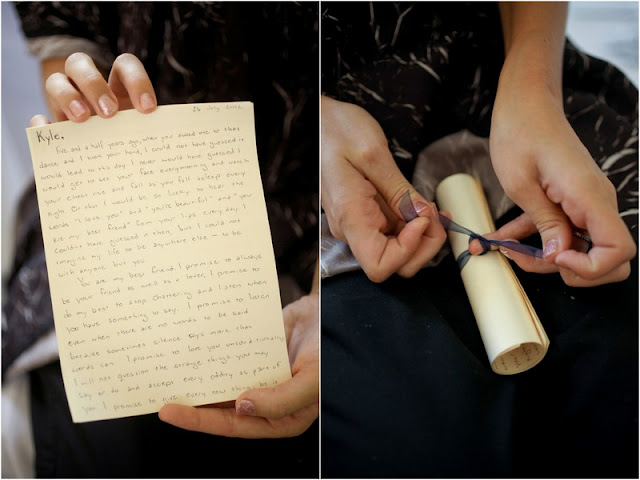 26 July 2012
Kyle,
Five and a half years ago, when you asked me to that
dance and I wore your tux, I could not have guessed it
would lead to this day. I never would have guessed I
would get to see your face every morning and watch
your chest rise and fall as you fall asleep every
night. Or that I would be so lucky to hear the
words "I love you" and "you're beautiful" and "your
my best friend" from your lips every day. I
couldn't have guessed it then, but I could not
imagine my life to be anywhere else - to be
with anyone but you.
You are my best friend. I promise to always
be your friend as well as a lover. I promise to
do my best to stop chattering and listen when
you have something to say. I promise to listen
even when there are no words to be said
because sometimes silence says more than
words can. I promise to love you unconditionally
I will not question the strange things you may
say or do and accept every oddity as part of
you. I promise to give every new thing